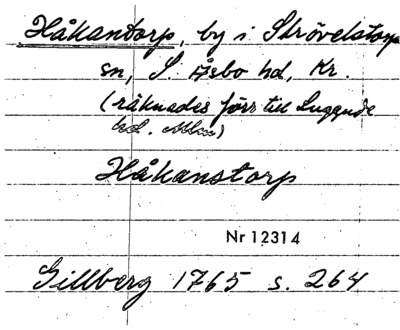 Håkantorp, by i Strövelstorps
sn, S. Åsbo hd, Kr.
(räknades förr till Luggude
hd. Mlm)
Håkanstorp
Nr 12314
Gillberg 1765 s. 264